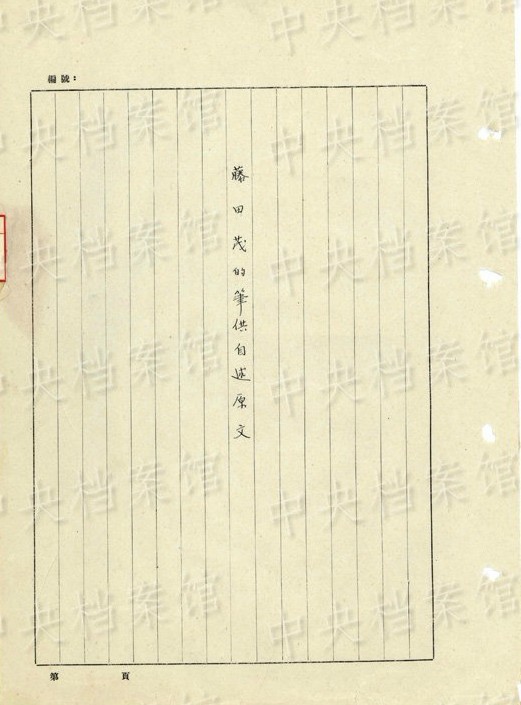 編號：
藤田茂的筆供自述原文
第　頁
中央档案馆